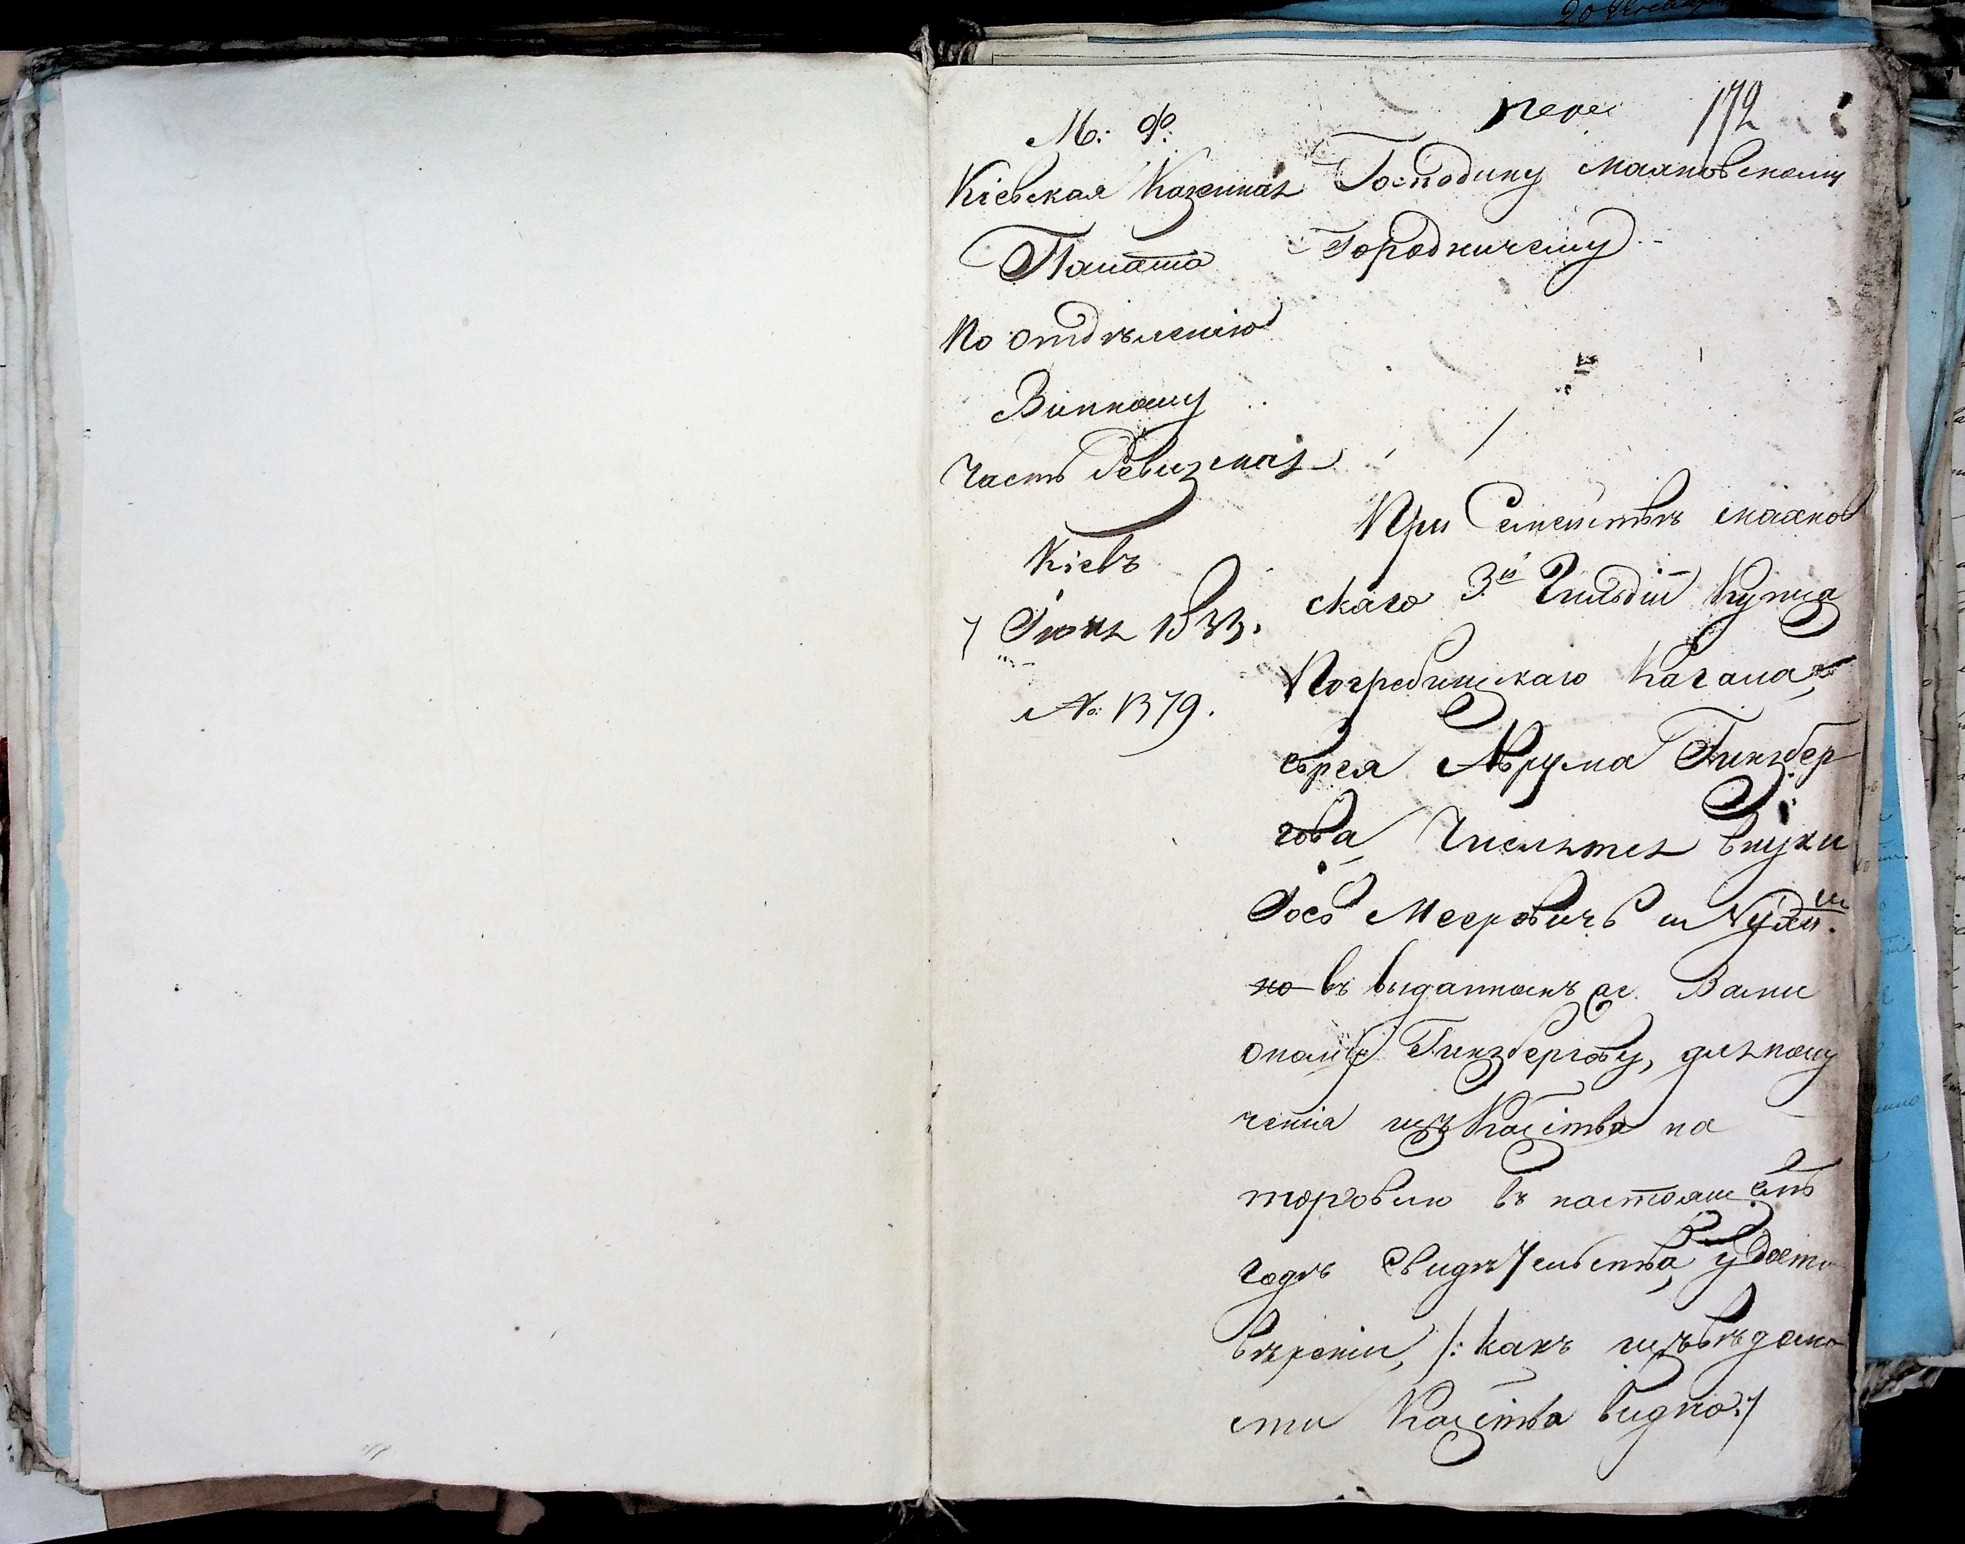 172
М: Ф:
Кіевская Казенная
Палата
По отдѣленію
Винному
Часть Ревизская
Кіевъ
7 Іюня 1833.
№ 1379.
Господину Махновскому
Городничему
При Семействѣ махнов
скаго 3й Гильдіи Купца
Погребищскаго Кагала,
еврея Аврума Гинзбер
гова, Числятся внуки
Іось Мееровичъ и
но въ выданномъ Вами
оному Гинзбергову, для полу
ченія изъ Кацтва на
торговлю въ настоящемъ
годѣ Свидѣтельства, удосто
вѣреніи, /: какъ изъ вѣдомо
сти Кацтва видно :/